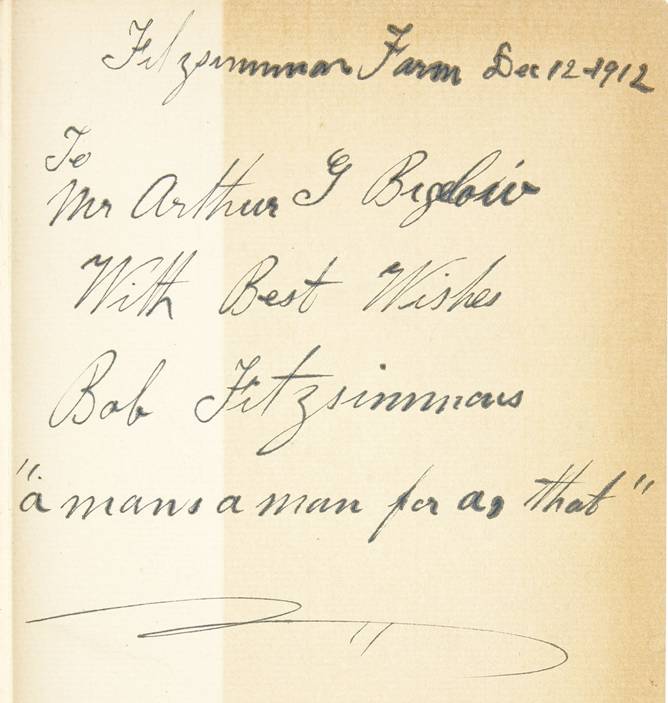 Fitzsimmons Farm Dec 12-1912
To
Mr Arthur G Bigelow
With Best Wishes
Bob Fitzsimmons
"a mans a man for a, that"